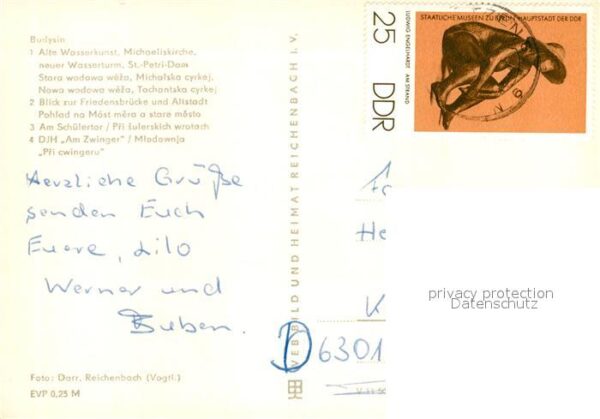 Budyšin
1 Alte Wasserkunst, Michaeliskirche,
neuer Wasserturm, St.-Petri-Dom
Stara wodowa wěža, Michałska cyrkej,
Nowa wodowa wěža, Tachantska cyrkej
2 Blick zur Friedensbrücke und Altstadt
Pohlad na Móst měra a stare město
3 Am Schülertor / Při šulerskich wrotach
4 DJH „Am Zwinger" / Młodownja
„Při cwingeru"
Herzliche Grüße
senden Euch
Euere, Lilo
Werner und
Buben.
Foto: Darr, Reichenbach (Vogtl.)
EVP 0,25 M
VEB BILD UND HEIMAT REICHENBACH I. V.
25 DDR
LUDWIG ENGELHARDT AM STRAND
STAATLICHE MUSEEN ZU BERLIN HAUPTSTADT DER DDR
He
K
D 6301
privacy protection
Datenschutz